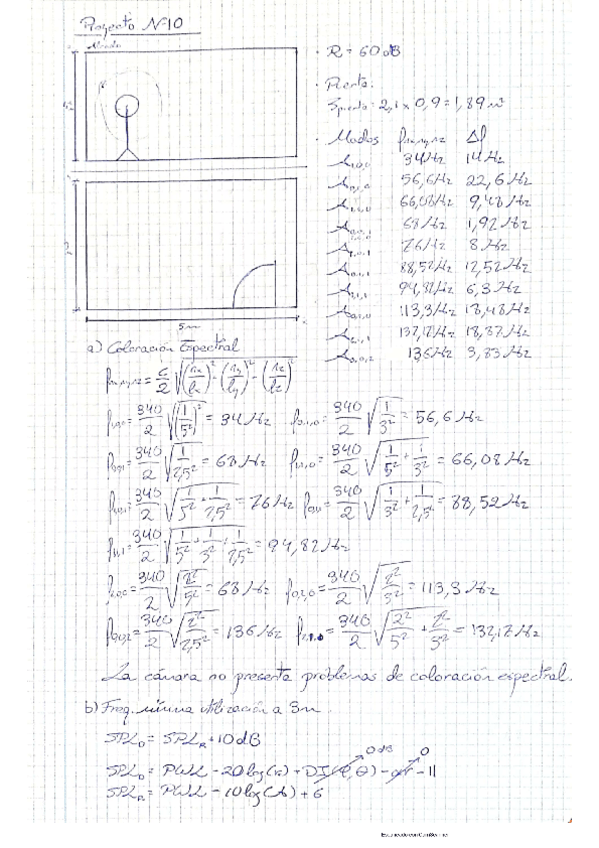 Proyecto Nº10
Alzado
R = 60 dB
Puerta:
Spuerta = 2,1 x 0,9 = 1,89 m²
Modos fnx,ny,nz Δf
A1,0,0 34Hz 14Hz
A0,1,0 56,6Hz 22,6Hz
A1,1,0 66,08Hz 9,48Hz
A0,0,1 68Hz 1,92Hz
2,0,0
A1,0,1 76Hz 8Hz
A0,1,1 88,52Hz 12,52Hz
A1,1,1 94,82Hz 6,3Hz
A0,2,0 113,3Hz 18,48Hz
132,17Hz 18,87Hz
A0,0,2 136Hz 3,83Hz
5m
a) Coloración Espectral
fnx,ny,nz = c/2 √((nx/lx)² - (ny/ly)² - (nz/lz)²)
f1,0,0 = 340/2 √((1/5²)²) = 34Hz f0,1,0 = 340/2 √(1/3²) = 56,6Hz
f0,0,1 = 340/2 √(1/2,5²) = 68Hz f1,1,0 = 340/2 √(1/5² + 1/3²) = 66,08Hz
f1,0,1 = 340/2 √(1/5² + 1/2,5²) = 76Hz f0,1,1 = 340/2 √(1/3² + 1/2,5²) = 88,52Hz
f1,1,1 = 340/2 √(1/5² + 1/3² + 1/2,5²) = 94,82Hz
f2,0,0 = 340/2 √(2²/5²) = 68Hz f0,2,0 = 340/2 √(2²/3²) = 113,3Hz
f0,0,2 = 340/2 √(2²/2,5²) = 136Hz = 340/2 √(2²/5² + 2²/3²) = 132,17Hz
La cámara no presenta problemas de coloración espectral.
b) Freq. mínima utilización a 3m.
SPLD = SPLR + 10dB
0dB 0
SPLD = PWL - 20log(r) + DI(φ,θ) - αr - 11
SPLR = PWL - 10log(A) + 6
Escaneado con CamScanner